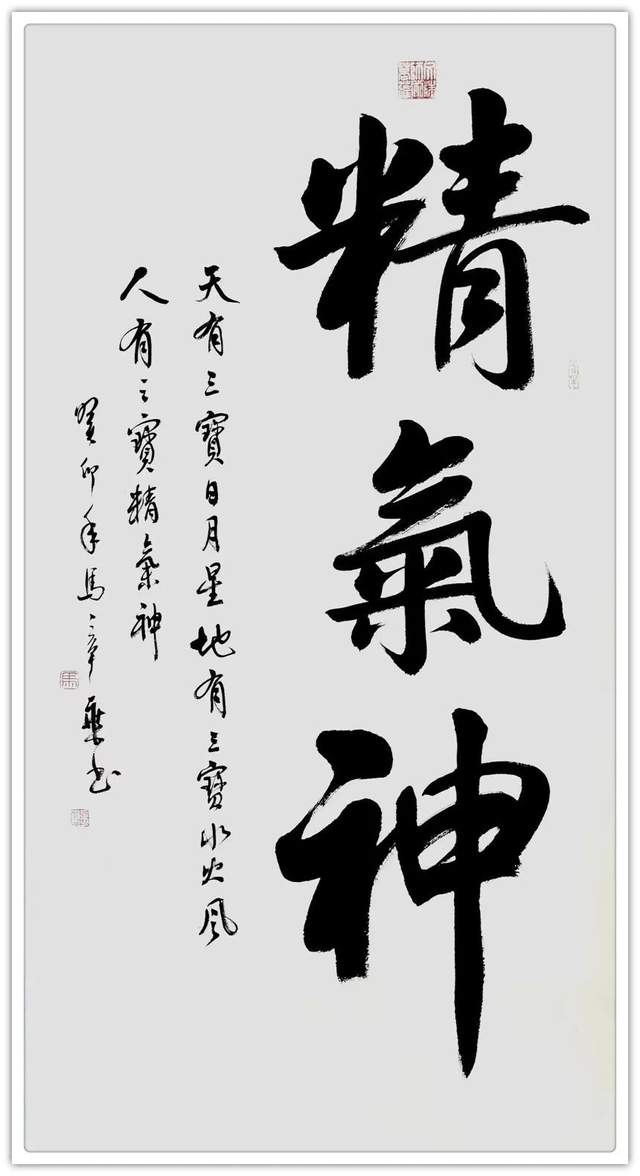 精氣神
天有三寶日月星地有三寶水火風
人有三寶精氣神
癸卯年馬章乘书